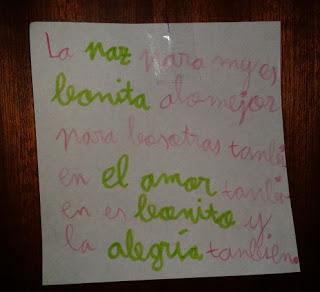 La naz para my es
bonita alomejor
para bosotras tanbi
en el amor tanbi-
en es bonito y
la alegría tanbien.